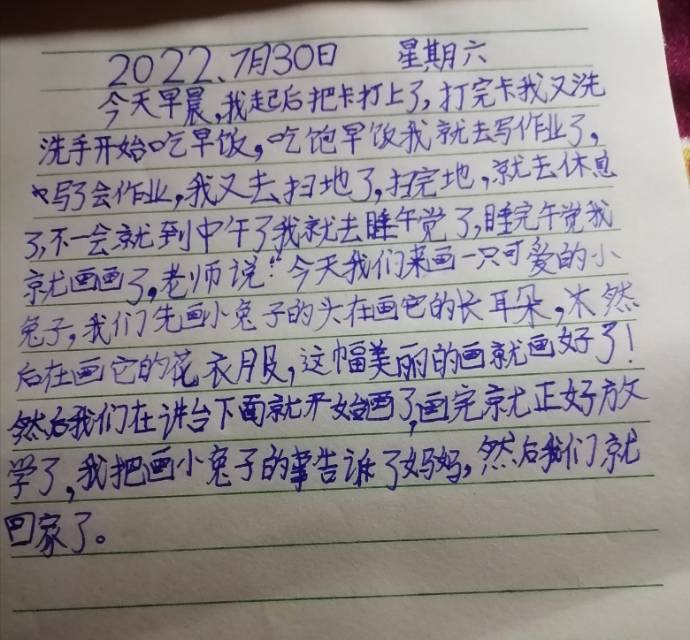 2022、7月30日 星期六
今天早晨,我起后把卡打上了,打完卡我又洗
洗手开始吃早饭,吃饱早饭我就去写作业了,
写了会作业,我又去扫地了,扫完地,就去休息
了,不一会就到中午了我就去睡午觉了,睡完午觉我
就画画了。老师说:“今天我们来画一只可爱的小
兔子,我们先画小兔子的头在画它的长耳朵,然
后在画它的花衣服,这幅美丽的画就画好了!
然后我们在讲台下面就开始画了,画完就正好放
学了,我把画小兔子的事告诉了妈妈,然后我们就
回家了。